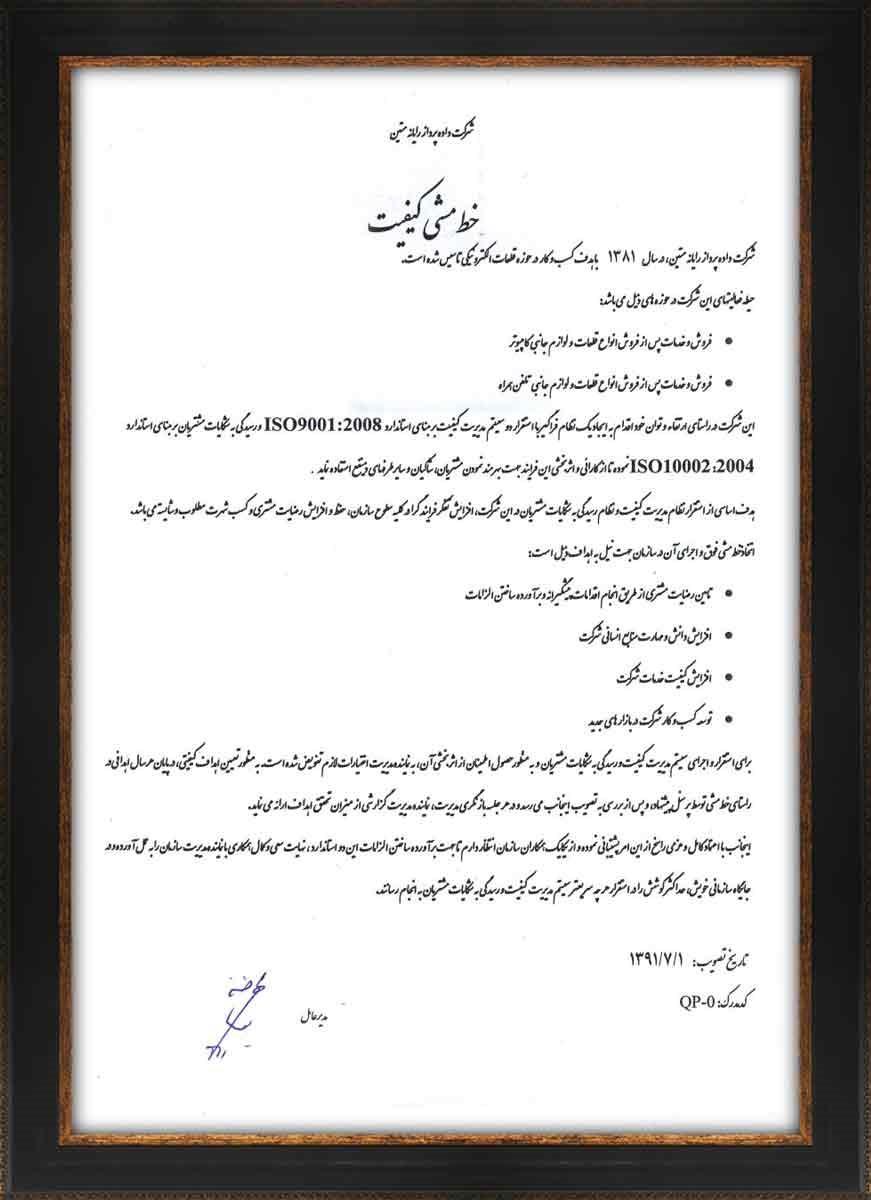 شرکت داده پرداز رایانه متین
خط مشی کیفیت
شرکت داده پرداز رایانه متین، در سال ۱۳۸۱ با هدف کسب و کار در حوزه قطعات الکترونیکی تاسیس شده است.
حیطه فعالیتهای این شرکت در حوزه های ذیل می باشد:
• فروش و خدمات پس از فروش انواع قطعات و لوازم جانبی کامپیوتر
• فروش و خدمات پس از فروش انواع قطعات و لوازم جانبی تلفن همراه
این شرکت در راستای ارتقاء و توان خود اقدام به ایجاد یک نظام فراگیر با استقرار دو سیستم مدیریت کیفیت بر مبنای استاندارد ISO9001:2008 و رسیدگی به شکایات مشتریان بر مبنای استاندارد
ISO10002:2004 نموده تا از کارائی و اثر بخشی این فرایند جهت بهرمند نمودن مشتریان، شاکیان و سایر طرفهای ذینفع استفاده نماید .
هدف اساسی از استقرار نظام مدیریت کیفیت و نظام رسیدگی به شکایات مشتریان در این شرکت، افزایش تفکر فرایند گرا در کلیه سطوح سازمان، حفظ و افزایش رضایت مشتری و کسب شهرت مطلوب و شایسته می باشد.
اتخاذ خط مشی فوق و اجرای آن در سازمان جهت نیل به اهداف ذیل است:
• تامین رضایت مشتری از طریق انجام اقدامات پیشگیرانه و برآورده ساختن الزامات
• افزایش دانش و مهارت منابع انسانی شرکت
• افزایش کیفیت خدمات شرکت
• توسعه کسب و کار شرکت در بازارهای جدید
برای استقرار و اجرای سیستم مدیریت کیفیت و رسیدگی به شکایات مشتریان و به منظور حصول اطمینان از اثر بخشی آن، به نماینده مدیریت اختیارات لازم تفویض شده است. به منظور تعیین اهداف کیفیتی، در پایان هر سال اهدافی در
راستای خط مشی توسط پرسنل پیشنهاد، و پس از بررسی به تصویب اینجانب می رسد و در هر جلسه بازنگری مدیریت، نماینده مدیریت گزارشی از میزان تحقق اهداف ارائه می نماید.
اینجانب با اعتقاد کامل و عزمی راسخ از این امر پشتیبانی نموده و از یکایک همکاران سازمان انتظار دارم تا جهت برآورده ساختن الزامات این دو استاندارد ، نهایت سعی و کمال همکاری با نماینده مدیریت سازمان را به عمل آورده و در
جایگاه سازمانی خویش، حداکثر کوشش را در استقرار هر چه سریعتر سیستم مدیریت کیفیت و رسیدگی به شکایات مشتریان به انجام رسانند.
تاریخ تصویب: ۱۳۹۱/۷/۱
کد مدرک: QP-0
مدیر عامل